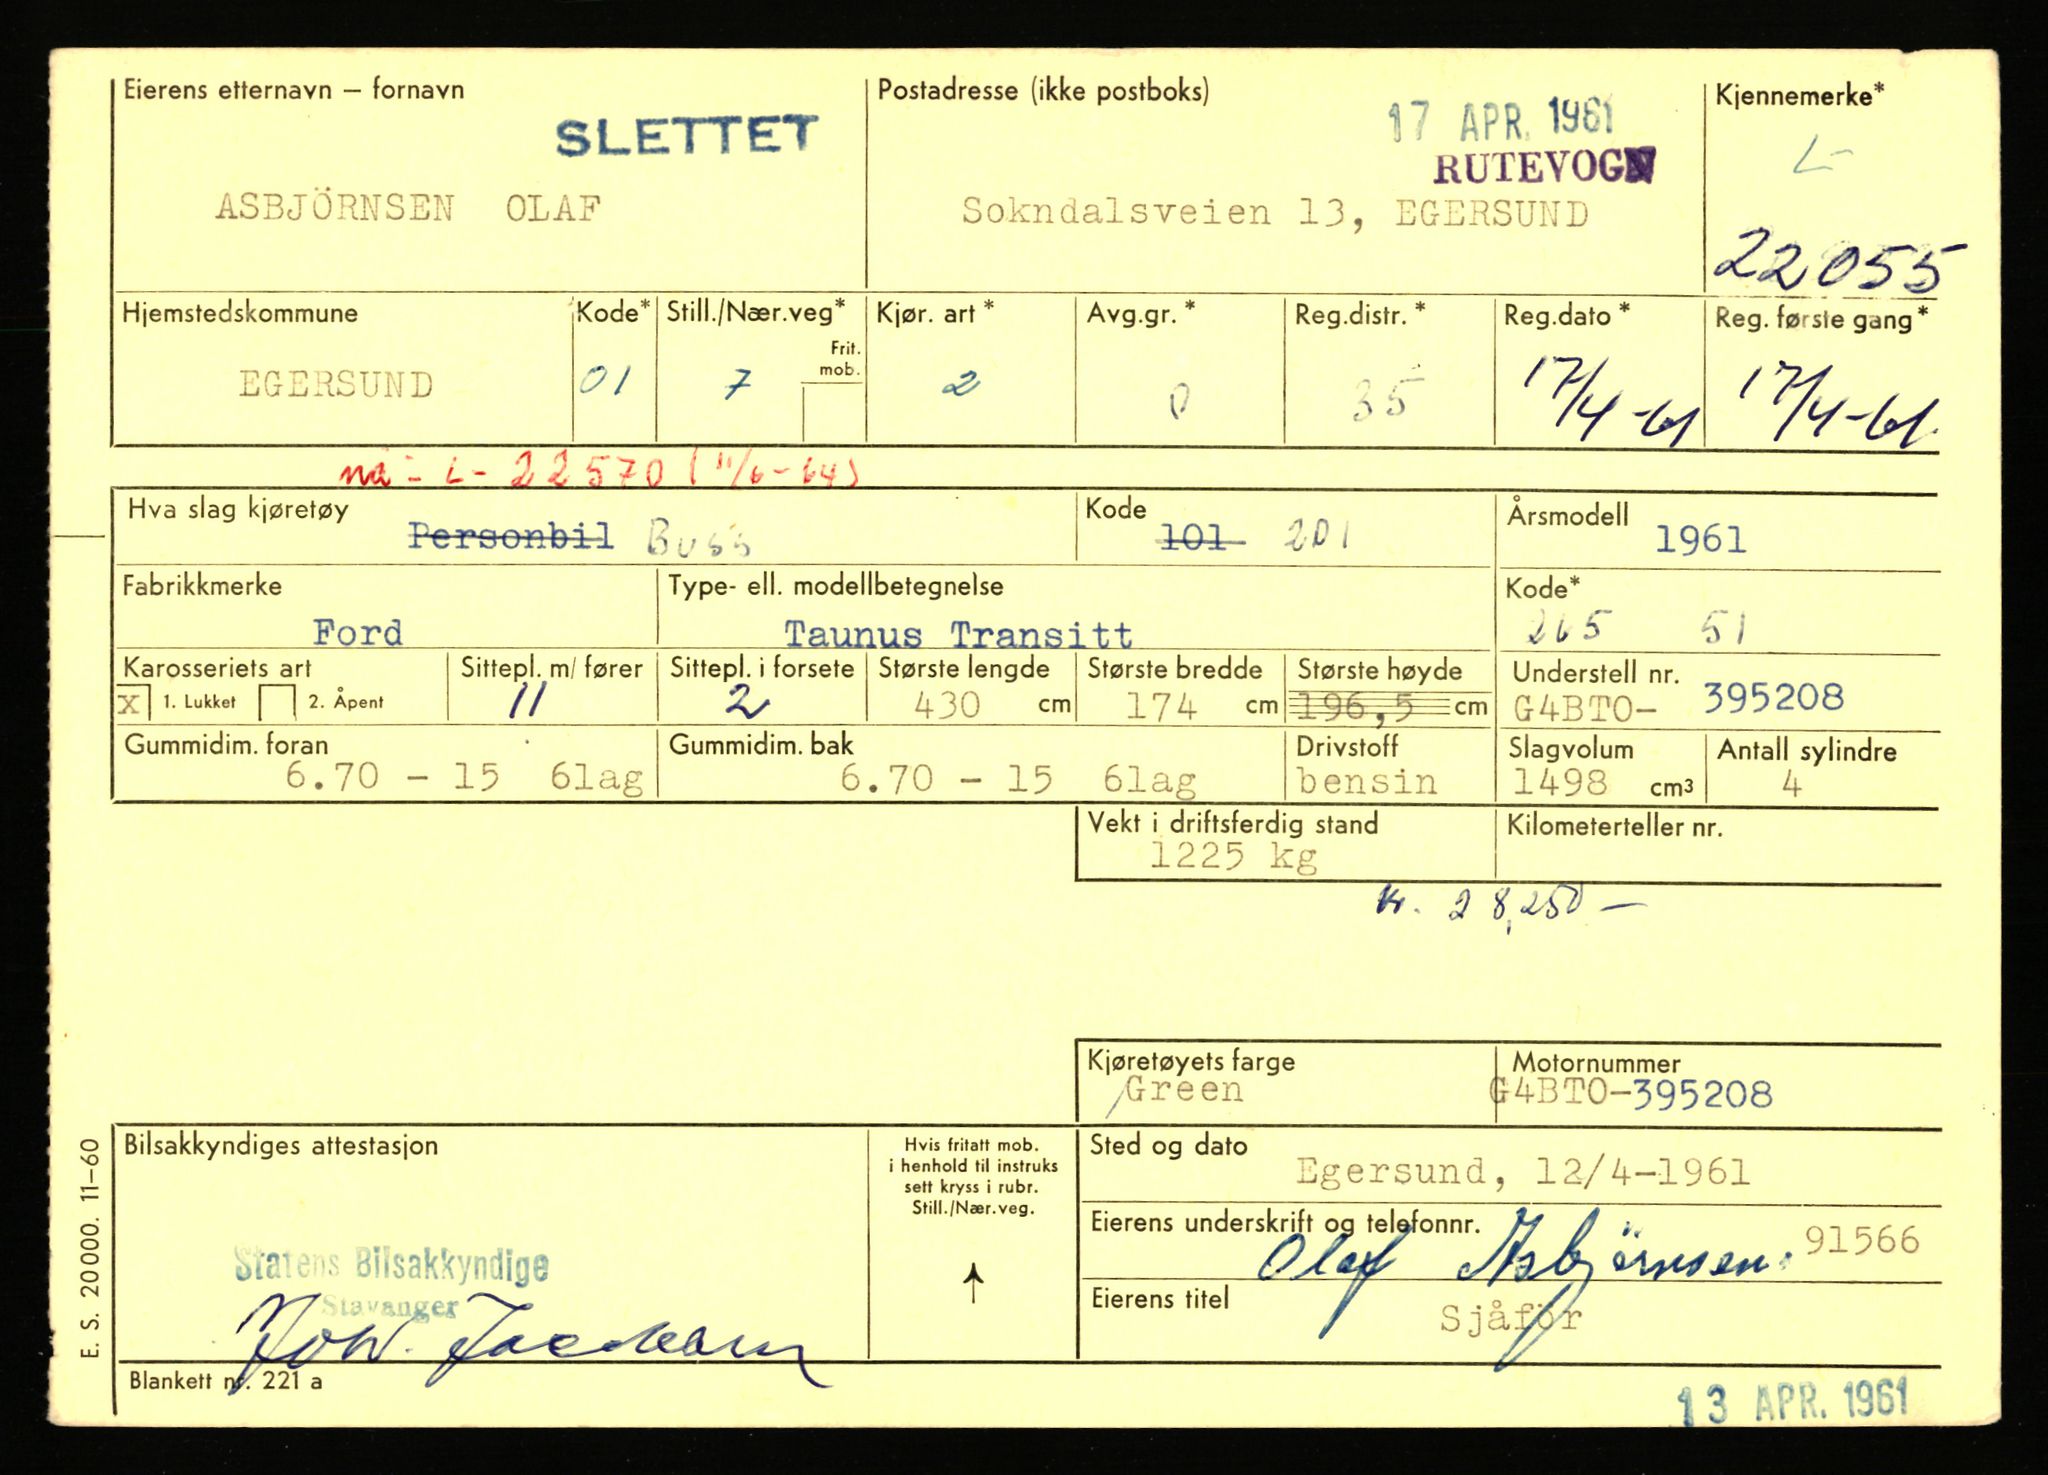 Eierens etternavn – fornavn
SLETTET
ASBJÖRNSEN OLAF
Postadresse (ikke postboks)
17 APR. 1961
RUTEVOGN
Sokndalsveien 13, EGERSUND
Kjennemerke*
L-
22055
Hjemstedskommune
EGERSUND
Kode*
01
Still./Nær.veg*
7
Frit.
mob.
Kjør. art *
2
Avg.gr. *
0
Reg.distr. *
35
Reg.dato *
17/4-61
Reg. første gang *
17/4-61.
nå - L- 22570 (11/6-64)
Hva slag kjøretøy
Personbil Buss
Kode
101 201
Årsmodell
1961
Fabrikkmerke
Ford
Type- ell. modellbetegnelse
Taunus Transitt
Kode*
265 51
Karosseriets art
X 1. Lukket 2. Åpent
Sittepl. m/ fører
11
Sittepl. i forsete
2
Største lengde
430 cm
Største bredde
174 cm
Største høyde
196,5 cm
Understell nr.
G4BTO- 395208
Gummidim. foran
6.70 - 15 6lag
Gummidim. bak
6.70 - 15 6lag
Drivstoff
bensin
Slagvolum
1498 cm³
Antall sylindre
4
Vekt i driftsferdig stand
1225 kg
Kilometerteller nr.
kr. 28,250 -
Kjøretøyets farge
Green
Motornummer
G4BTO-395208
Bilsakkyndiges attestasjon
Statens Bilsakkyndige
Stavanger
Hvis fritatt mob.
i henhold til instruks
sett kryss i rubr.
Still./Nær.veg.
Sted og dato
Egersund, 12/4-1961
Eierens underskrift og telefonnr.
Olaf Asbjørnsen. 91566
Eierens titel
Sjåför
Blankett nr. 221 a
13 APR. 1961
E. S. 20000. 11-60